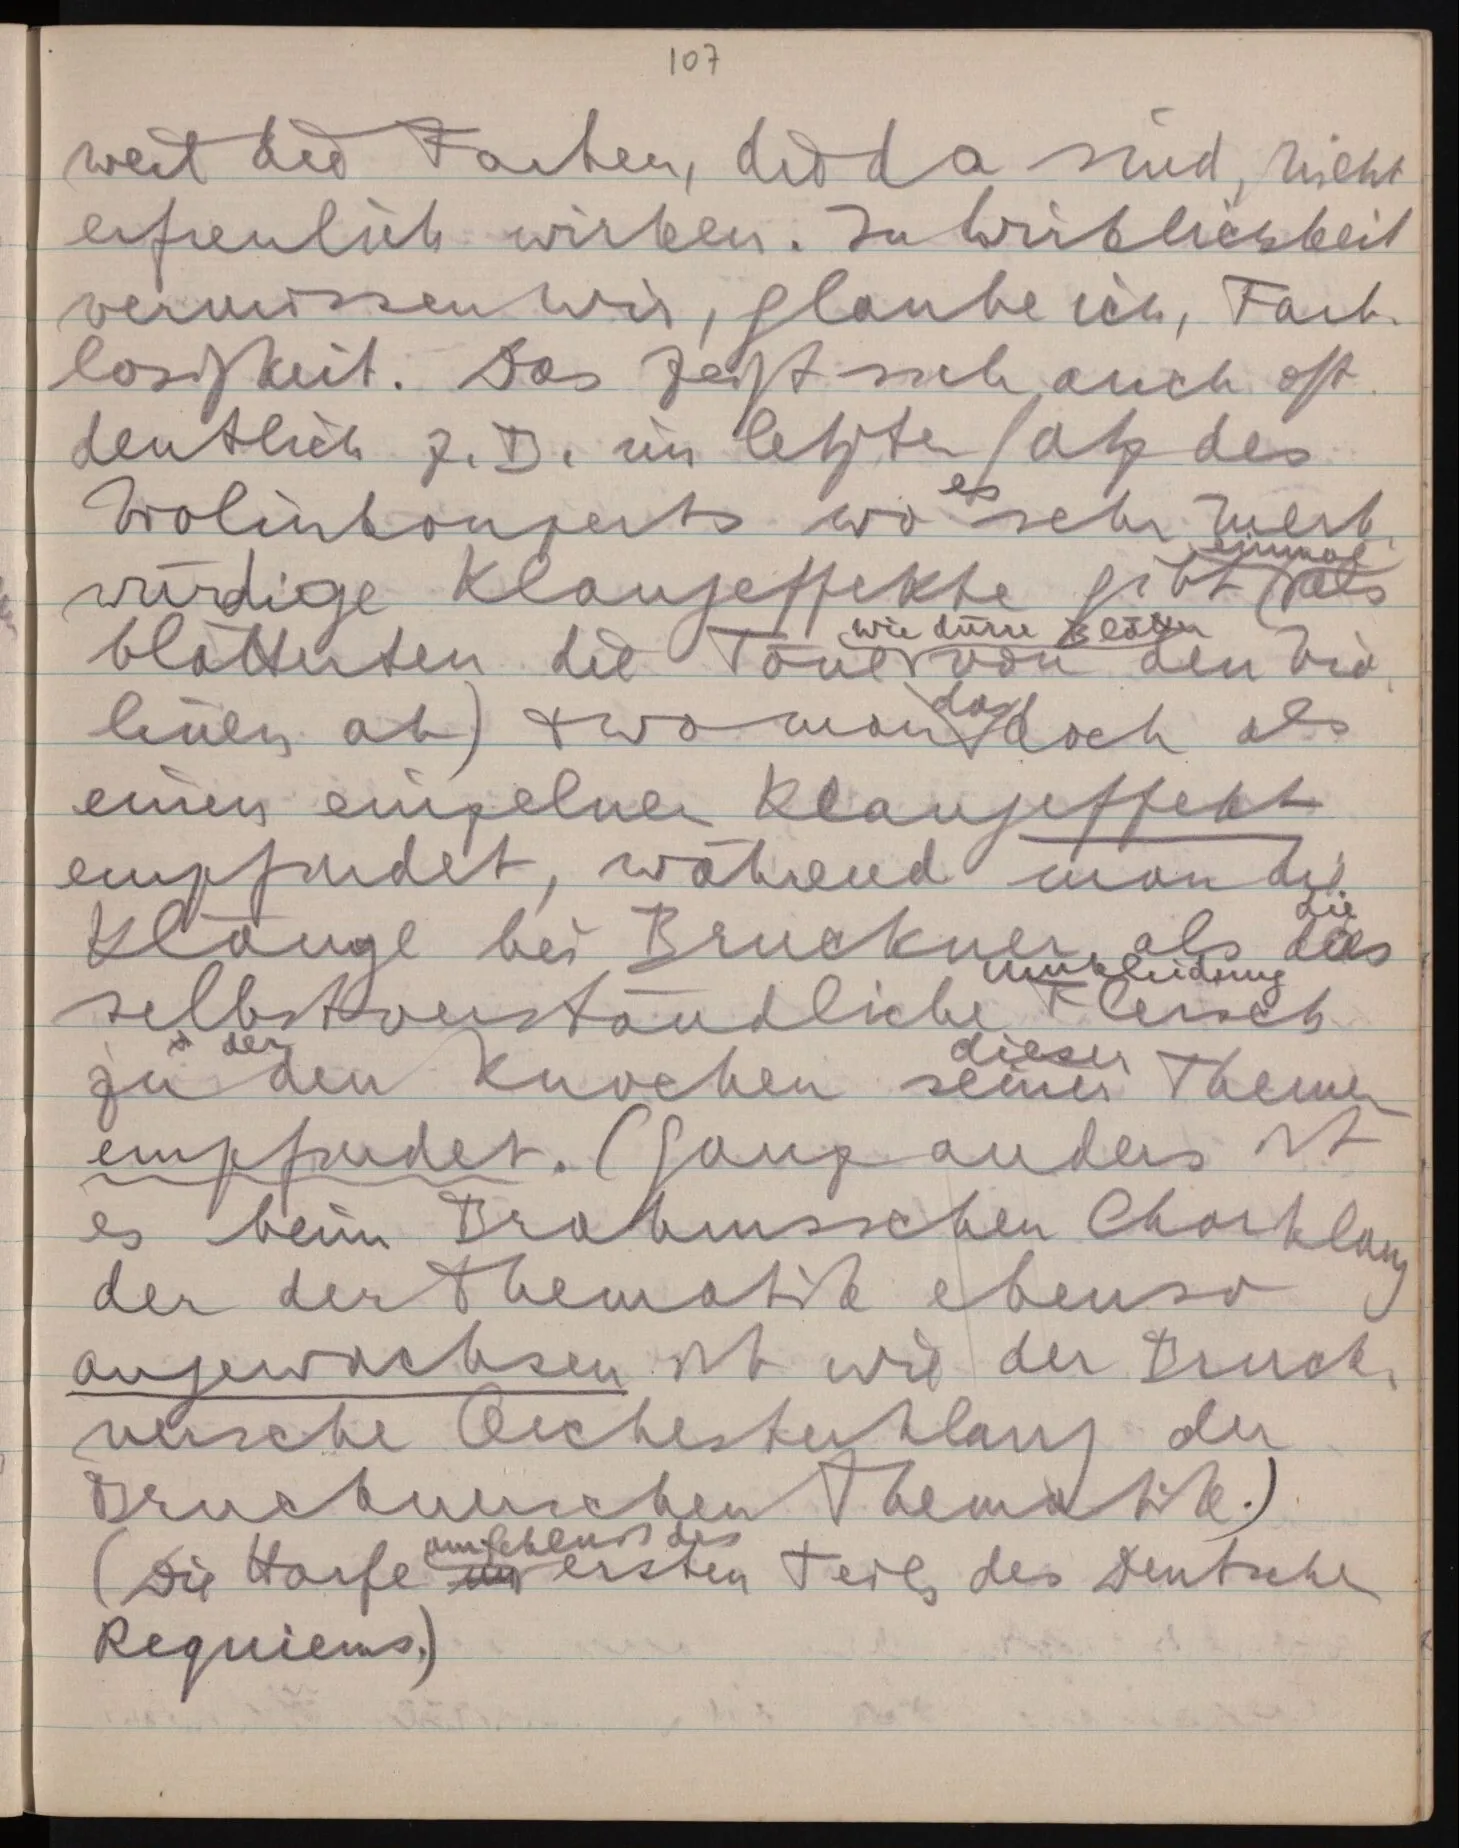 107
weil die Farben, die da sind, nicht
erfreulich wirken. In Wirklichkeit
vermissen wir, glaube ich, Farb-
losigkeit. Das zeigt sich auch oft
deutlich z. B. im letzten Satz des
Violinkonzerts wo es sehr merk-
würdige Klangeffekte gibt (einmal als
blätterten die Töne wie dürre Blätter von den Vio-
linen ab) & wo man das doch als
einen einzelnen Klangeffekt
empfindet, während man die
Klänge bei Bruckner als das die
selbstverständliche Umkleidung Fleisch
zu & der den Knochen seiner dieser Themen
empfindet. (Ganz anders ist
es beim Brahmsschen Chorklang
der der Thematik ebenso
angewachsen ist wie der Bruck-
nersche Orchesterklang der
Brucknerschen Thematik.)
(Die Harfe am Schluß des ersten Teils des Deutschen
Requiems.)